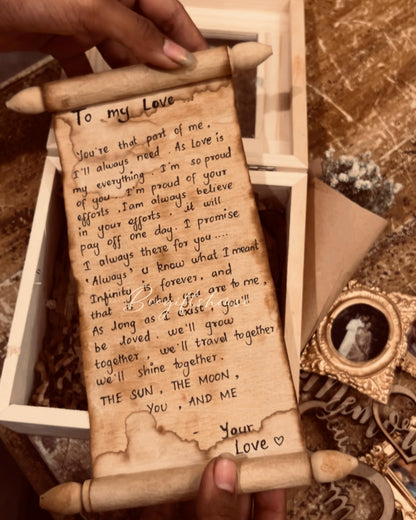 To my Love
You're that part of me,
I'll always need. As Love is
my everything. I'm so proud
of you. I'm proud of your
efforts. I am always believe
in your efforts. it will
pay off one day. I promise
I always there for you....
'Always', u know what I meant
Infinity is forever, and
that is what you are to me,
As long as I exist, you'll
be loved, we'll grow
together, we'll travel together
we'll shine together.
THE SUN, THE MOON,
YOU, AND ME
Your
Love ♡